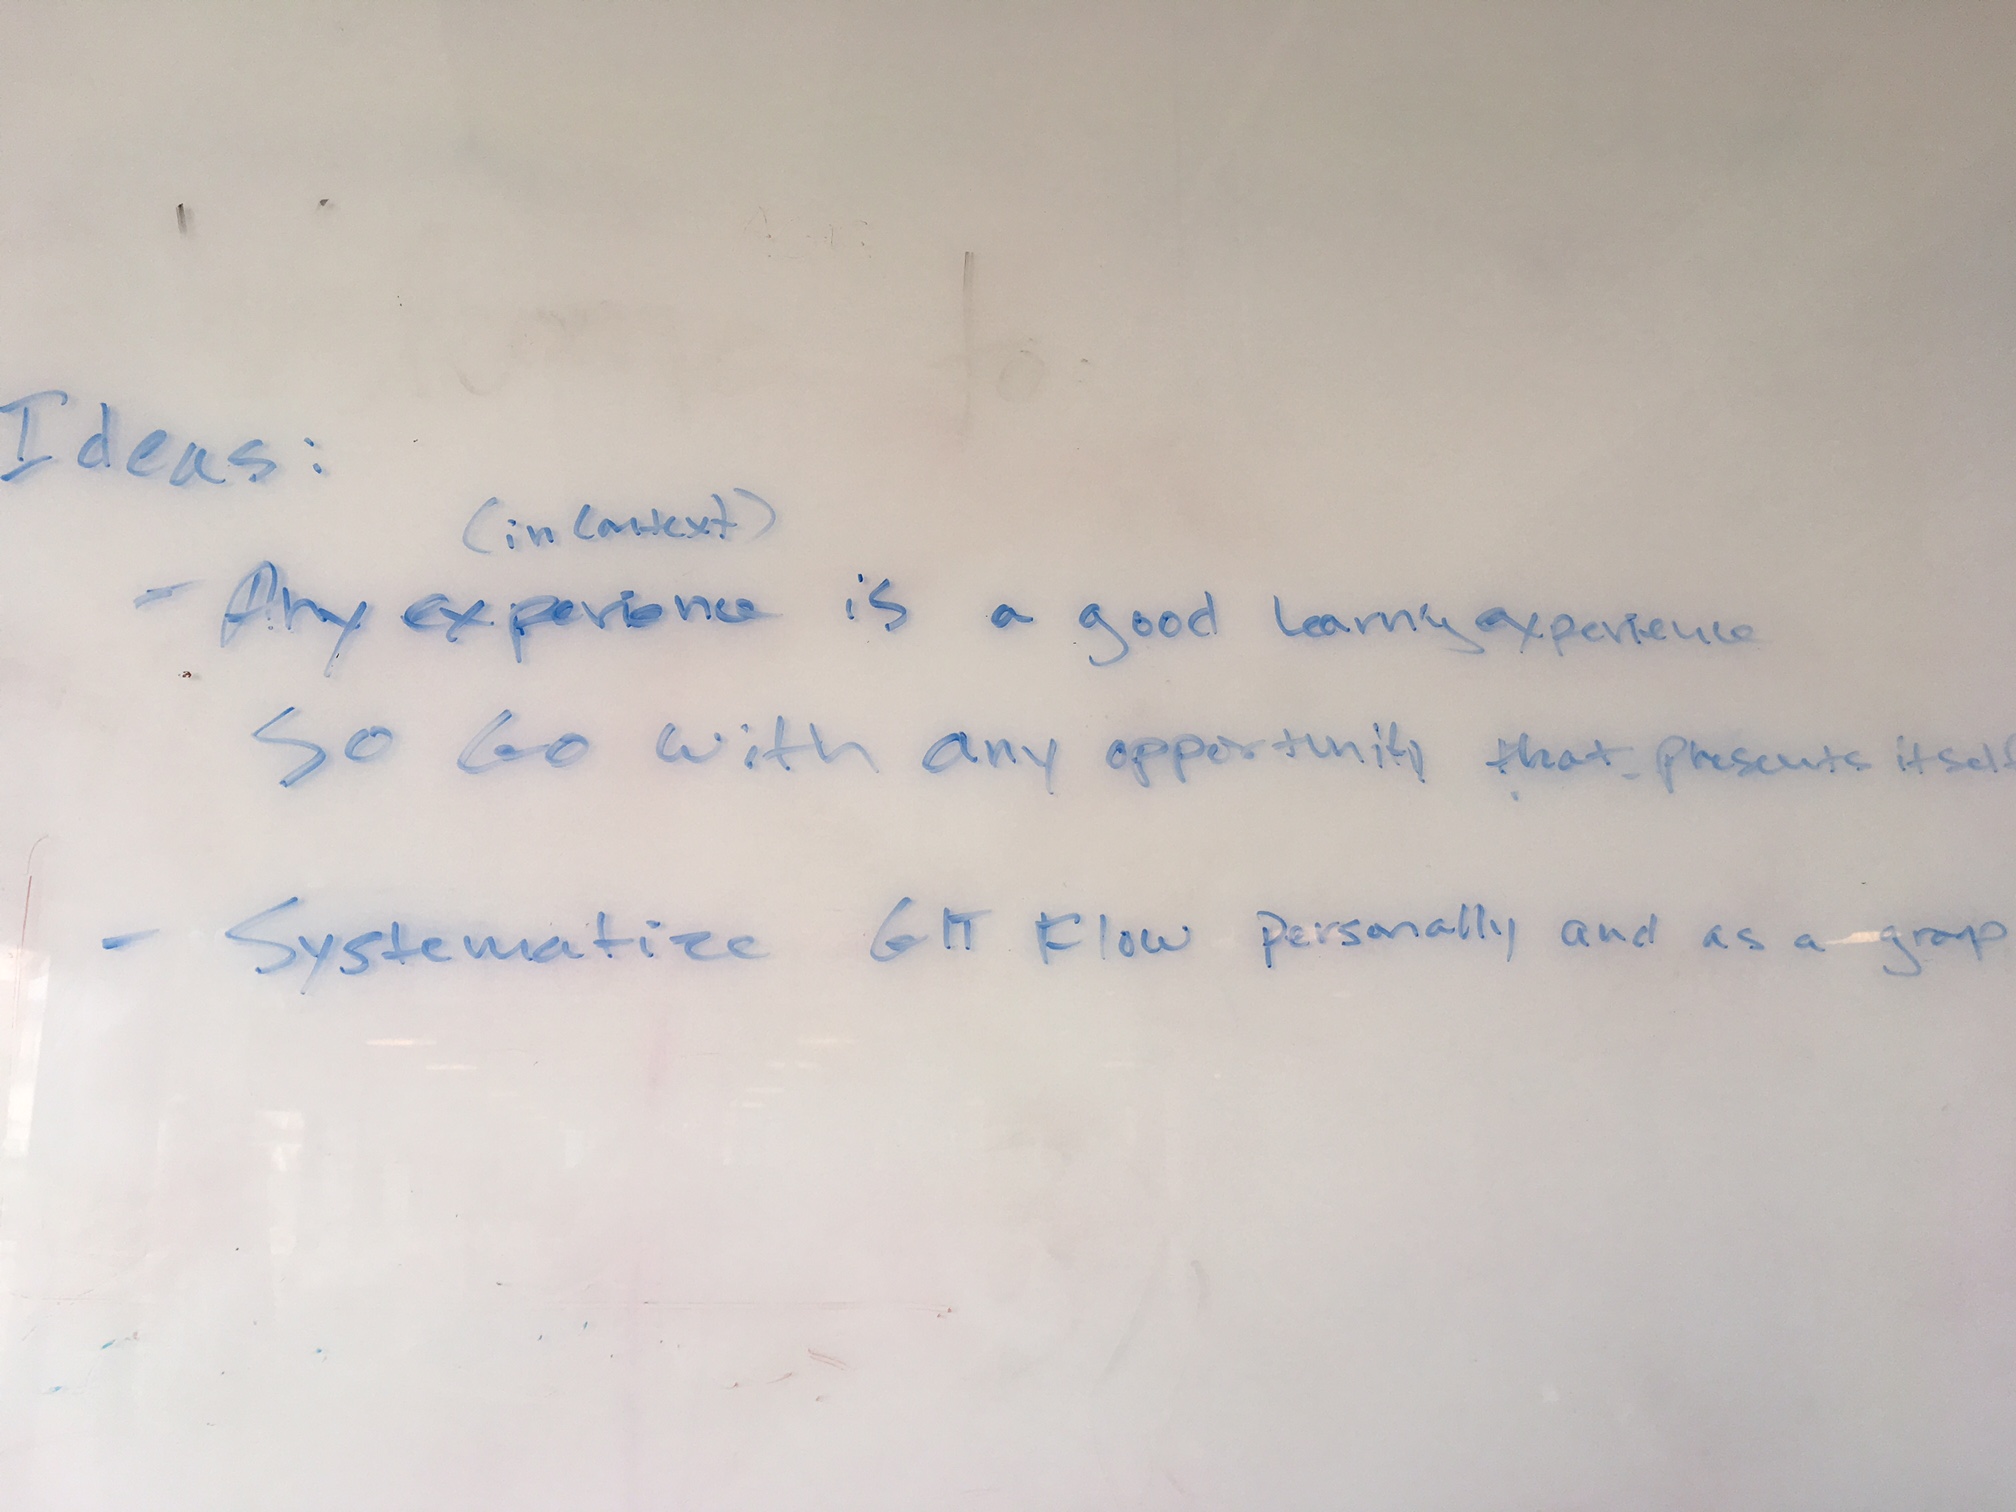 Ideas:
(in context)
- Any experience is a good learning experience
So Go with any opportunity that presents itself
- Systematize GIT Flow personally and as a group